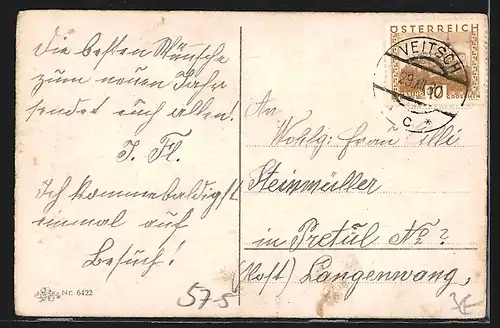 Die besten Wünsche
zum neuen Jahr
sendet euch allen!
J. Fl.
Ich komme baldigst
einmal auf
Besuch!
Nr. 6422
575
ÖSTERREICH
VEITSCH
10
c *
An
Wohlg: Frau
Steinmüller
in Pretul No ?
(Post) Langenwang,